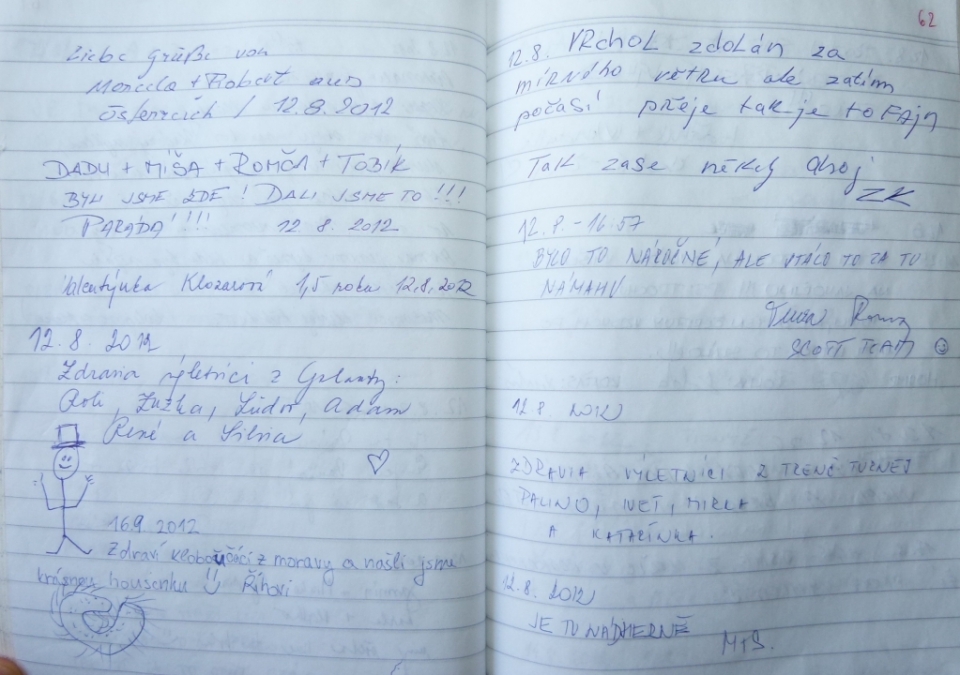 Liebe Grüße von
Marcela + Robert aus
Österreich / 12.8.2012
DADU + MIŠA + ROMČA + TOBÍK
BYLI JSME ZDE! DALI JSME TO!!!
PARÁDA!!!! 12.8.2012
Valentýnka 1,5 roku 12.8.2012
12.8.2012
Zdravia výletníci z Galanty:
Zuzka, Ľudo, Adam
René a Silvia
16.9.2012
Zdraví Kloboučáci z moravy a našli jsme
krásnou housenku Říhovi
62
12.8. VRchoL zdolán za
mírného větru ale zatím
počasí přeje tak je to FAJN
Tak zase někdy ahoj
ZK
12.8. - 16:57
BYLO TO NÁROČNÉ, ALE STÁLO TO ZA TU
NÁMAHU
SCOTT TEAM
12.8. 2012
ZDRAVIA VÝLETNÍCI Z TRENČ TURNEJ
PALINO, IVET, MIRKA
A KATARÍNKA.
12.8.2012
JE TU NÁDHERNĚ
M+S.